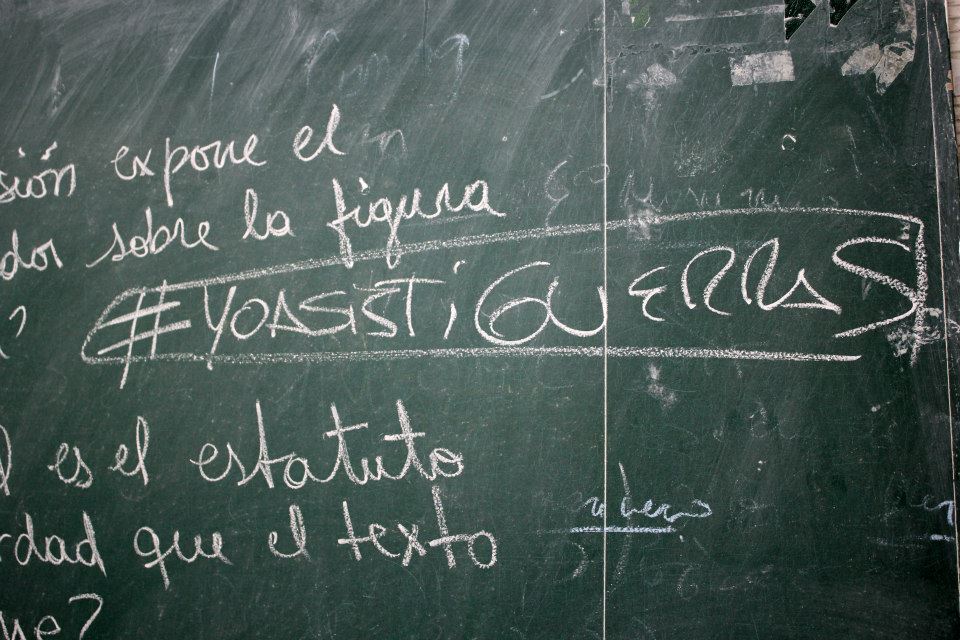 sión expone el
dor sobre la figura
?
#YOASISTIGUERRAS
es el estatuto
rdad que el texto
ne?